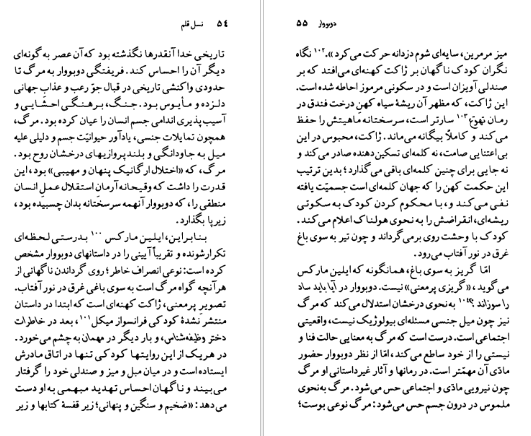 ۵۴ نسل قلم
تاریخی خدا آنقدرها نگذشته بود که آن عصر به گونه‌ای
دیگر آن را احساس کند. فریفتگی دوبووار به مرگ تا
حدودی واکنشی تاریخی در قبال جوّ رعب و عذاب جهانی
دلزده و مأیوس بود. جنگ، برهنگی احشایی و
آسیب پذیری اندامی جسم انسان را عیان کرده بود. مرگ،
همچون تمایلات جنسی، یادآور حیوانیّت جسم و دلیلی علیه
میل به جاودانگی و بلندپروازیهای درخشان روح بود.
مرگ، که «اختلال ارگانیک پنهان و مهیبی» بود، این
قدرت را داشت که وقیحانه آرمان استقلال عمل انسان
منطقی را، که دوبووار آنهمه سرسختانه بدان چسبیده بود،
زیر پا بگذارد.
بنابراین، ایلین مارکس ۱۰۰ بدرستی لحظه‌ای
تکرارشونده و تقریباً آیینی را در داستانهای دوبووار مشخص
کرده است: نوعی انصراف خاطر؛ روی گرداندن ناگهانی از
هرآنچه گواه مرگ است به سوی باغی غرق در نور آفتاب.
تصویر پرمعنی، ژاکت کهنه‌ای است که ابتدا در داستان
منتشر نشدهٔ کودکی فرانسواز میکل ۱۰۱، بعد در خاطرات
دختر وظیفه‌شناس، و بار دیگر در مهمان به چشم می‌خورد.
در هریک از این روایتها کودکی تنها در اتاق مادرش
ایستاده است و در میان مبل و میز و صندلی خود را گرفتار
می‌بیند و ناگهان احساس تهدید مبهمی به او دست
می‌دهد: «ضخیم و سنگین و پنهانی؛ زیر قفسهٔ کتابها و زیر
دوبووار ۵۵
میز مرمرین، سایه‌ای شوم دزدانه حرکت می‌کرد».۱۰۲ نگاه
نگران کودک ناگهان بر ژاکت کهنه‌ای می‌افتد که بر
صندلی آویزان است و در سکونی مرموز احاطه شده است.
این ژاکت، که مظهر آن ریشهٔ سیاه کهن درخت فندق در
رمان تهوّع ۱۰۳ سارتر است، سرسختانه ماهیتش را حفظ
می‌کند و کاملاً بیگانه می‌ماند. ژاکت، محبوس در
بی‌اعتنایی صامت، نه کلمه‌ای تسکین‌دهنده صادر می‌کند و
نه جایی برای چنین کلمه‌ای باقی می‌گذارد؛ بدین ترتیب
این حکمت کهن را که جهان کلمه‌ای است جسمیّت یافته
نفی می‌کند و، با محکوم کردن کودک به سکوتی
ریشه‌ای، انقراضش را به نحوی هولناک اعلام می‌کند.
کودک با وحشت روی برمی‌گرداند و چون تیر به سوی باغ
غرق در نور آفتاب می‌رود.
امّا گریز به سوی باغ، همانگونه که ایلین مارکس
می‌گوید، «گریزی پرمعنی» نیست. دوبووار در آیا باید ساد
را سوزاند؟ ۱۰۴ به نحوی درخشان استدلال می‌کند که مرگ
نیز چون میل جنسی مسئله‌ای بیولوژیک نیست، واقعیتی
اجتماعی است. درست است که مرگ به معنایی حالت فنا و
نیستی را از خود ساطع می‌کند، امّا از نظر دوبووار حضور
مادّی آن مهمّتر است. در رمانها و آثار غیرداستانی او مرگ
چون نیرویی مادّی و اجتماعی حس می‌شود. مرگ به‌نحوی
ملموس در درون جسم حس می‌شود: مرگ نوعی بوست؛